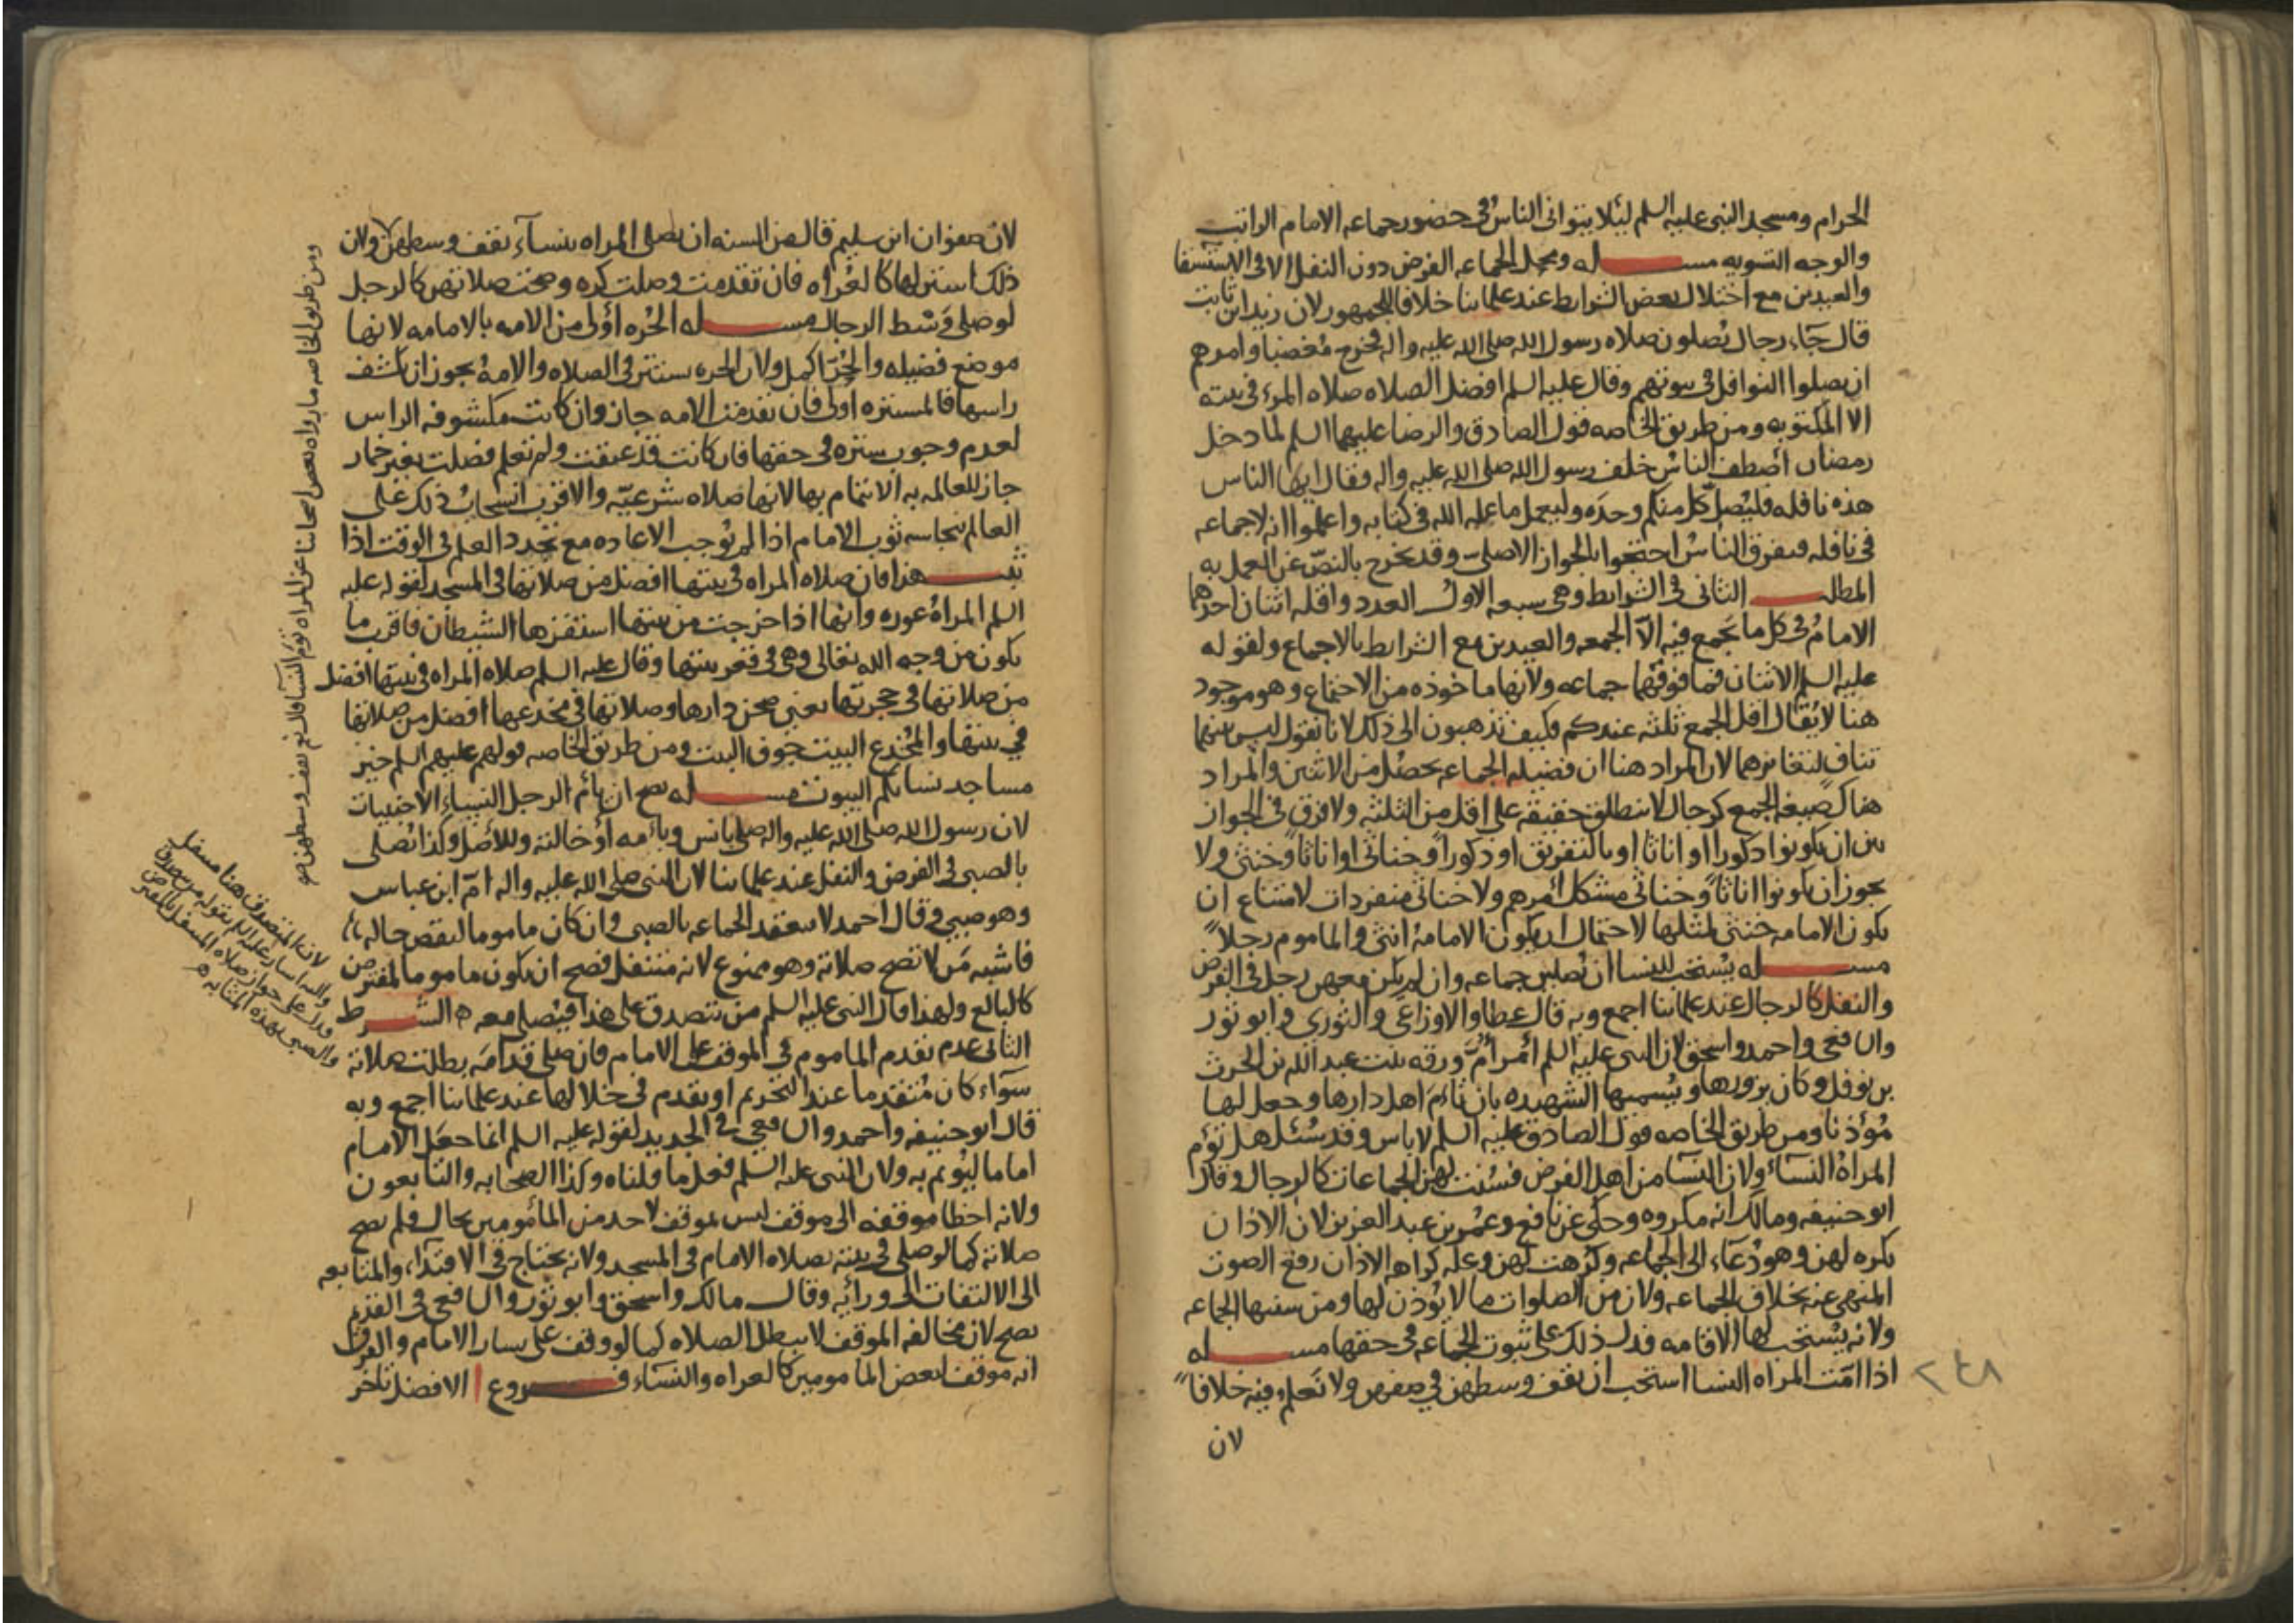 الحرام ومسجد النبى عليه السلم ليلا يتوانى الناس فى حضور جماعه الامام الراتب
والوجه التسويه مسـله ومحل الجماعه الفرض دون النفل الا فى الاستسقا
والعيدين مع اختلال بعض الشرايط عند علماينا خلافا للجمهور لان زيد ابن ثابت
قال جاء رجال يصلون صلاه رسول الله صلى الله عليه واله فخرج مغضبا وامرهم
ان يصلوا النوافل فى بيوتهم وقال عليه السلم افضل الصلاه صلاه المرء فى بيته
الا المكتوبه ومن طريق الخاصه قول الصادق والرضا عليهما السلم لما دخل
رمضان اصطف الناس خلف رسول الله صلى الله عليه واله وقال ايها الناس
هذه نافله فليصل كل منكم وحده وليعمل ما علمه الله فى كتابه واعلموا انه لا جماعه
فى نافله فتفرق الناس احتجوا بالجواز الاصلى وقد يخرج بالنص عن العمل به
المطلـب الثانى فى الشرايط وهى سبعه الاول العدد واقله اثنان احدهما
الامام فى كل ما يجمع فيه الا الجمعه والعيدين مع الشرايط بالاجماع ولقوله
عليه السلم الاثنان فما فوقهما جماعه ولانها ماخوذه من الاجتماع وهو موجود
هنا لا يقال اقل الجمع ثلثه عندكم فكيف تذهبون الى ذلك لانا نقول ليس بينهما
تناف لتغايرهما لان المراد هنا ان فضيله الجماعه تحصل من الاثنين والمراد
هناك صيغه الجمع كرجال لا ينطلق حقيقه على اقل من الثلثه ولا فرق فى الجواز
بين ان يكونوا ذكورا او اناثا او بالتفريق او ذكورا وخناثى او اناثا وخنثى ولا
يجوز ان يكونوا اناثا وخناثى مشكل امرهم ولا خناثى منفردات لامتناع ان
يكون الامامه خنثى لمثلها لاحتمال ان يكون الامامه انثى والماموم رجلا
مسـله يستحب للنسا ان يصلين جماعه وان لم يكن معهن رجل فى الفرض
والنفل كالرجال عند علماينا اجمع وبه قال عطا والاوزاعى والثورى وابو ثور
والشافعى واحمد واسحق لان النبى عليه السلم امر ام ورقه بنت عبد الله بن الحرث
بن نوفل وكان يزورها ويسميها الشهيده بان تام اهل دارها وجعل لها
مؤذنا ومن طريق الخاصه قول الصادق عليه السلم لا باس وقد سئل هل تؤم
المراه النساء ولان النسآ من اهل الفرض فسنت لهن الجماعات كالرجال وقال
ابو حنيفه ومالك انه مكروه وحكى عن نافع وعمر بن عبد العزيز لان الاذان
يكره لهن وهو دعاء الى الجماعه وكرهت لهن وعله كراهه الاذان رفع الصوت
المنهى عنه بخلاف الجماعه ولان من الصلوات ما لا يؤذن لها ومن سننها الجماعه
ولانه يستحب لها الاقامه فدل ذلك على ثبوت الجماعه فى حقها مسـله
اذا امت المراه النسا استحب ان تقف وسطهن فى صفهن ولا نعلم فيه خلافا
لان
٢٤٨
لان صفوان ابن سليم قال من السنه ان تصلى المراه بنسآء تقف وسطهن ولان
ذلك استر لها كالعراه فان تقدمت وصلت كره وصحت صلاتهن كالرجل
لو صلى وسط الرجال مسـله الحره اولى من الامه بالامامه لانها
موضع فضيله والحره اكمل ولان الحره تستتر فى الصلاه والامه يجوز ان تكشف
راسها فالمستتره اولى فان تقدمت الامه جاز وان كانت مكشوفه الراس
لعدم وجوب ستره فى حقها فان كانت قد عتقت ولم تعلم فصلت بغير خمار
جاز للعالمه به الايتمام بها لانها صلاه شرعيه والاقرب انسحاب ذلك على
العالم بنجاسه ثوب الامام اذا لم نوجب الاعاده مع تجدد العلم فى الوقت اذا
ثبـت هذا فان صلاه المراه فى بيتها افضل من صلاتها فى المسجد لقوله عليه
السلم المراه عوره وانها اذا خرجت من بيتها استفزها الشيطان فاقرب ما
يكون من وجه الله تعالى وهى فى قعر بيتها وقال عليه السلم صلاه المراه فى بيتها افضل
من صلاتها فى حجرتها يعنى صحن دارها وصلاتها فى مخدعها افضل من صلاتها
فى بيتها والمخدع البيت جوف البيت ومن طريق الخاصه قولهم عليهم السلم خير
مساجد نسائكم البيوت مسـله يصح ان يام الرجل النساء الاجنبيات
لان رسول الله صلى الله عليه واله صلى بانس وبامه او خالته وللاصل وكذا يصلى
بالصبى فى الفرض والنفل عند علماينا لان النبى صلى الله عليه واله ام ابن عباس
وهو صبى وقال احمد لا تنعقد الجماعه بالصبى وان كان ماموما لنقص حاله
فاشبه من لا تصح صلاته وهو ممنوع لانه متنفل فصح ان يكون ماموما لمفترض
كالبالغ ولهذا قال النبى عليه السلم من يتصدق على هذا فيصلى معه الشـرط
الثانى عدم تقدم الماموم فى الموقف على الامام فان صلى قدامه بطلت صلاته
سواء كان متقدما عند التحريم او تقدم فى خلالها عند علماينا اجمع وبه
قال ابو حنيفه واحمد والشافعى فى الجديد لقوله عليه السلم انما جعل الامام
اماما ليوتم به ولان النبى عليه السلم فعل ما قلناه وكذا الصحابه والتابعون
ولانه اخطا موقفه الى موقف ليس لموقف لاحد من المأمومين بحال فلم تصح
صلاته كما لو صلى فى بيته بصلاه الامام فى المسجد ولانه يحتاج فى الاقتداء والمتابعه
الى الالتفات الى ورائه وقال مالك واسحق وابو ثور والشافعى فى القديم
تصح لان مخالفه الموقف لا تبطل الصلاه كما لو وقف على يسار الامام والفرق
انه موقف لبعض المامومين كالعراه والنساء فـروع ا الافضل تاخر
ومن طريق الخاصه ما رواه بعض اصحابنا عن المراه تؤم النسآ قال نعم تقف وسطهن
لان المتصدق هنا متنفل
واليه اشار عليه السلم بقوله من يتصدق
فدل على جواز صلاه المتنفل بالمفترض
والصبى بهذه المثابه